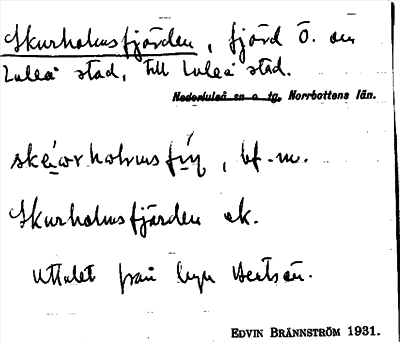 Skurholmsfjärden, fjärd Ö. om
Luleå stad, till Luleå stad.
Nederluleå sn o tg, Norrbottens län.
holmsfj , bf. m.
Skurholmsfjärden ek.
Uttalet från byn Hertsön.
EDVIN BRÄNNSTRÖM 1931.